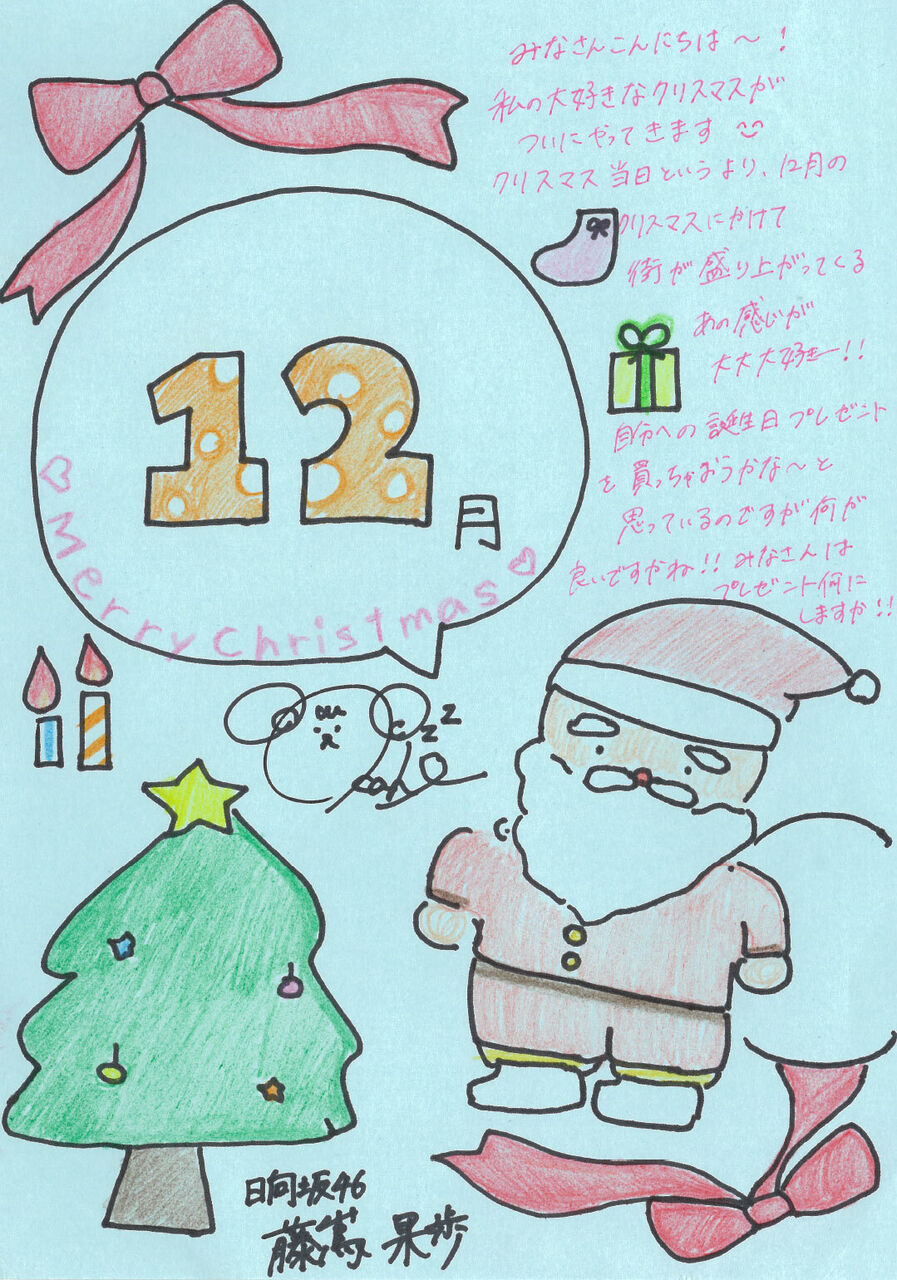 みなさんこんにちは〜！
私の大好きなクリスマスが
ついにやってきます
クリスマス当日というより、12月の
クリスマスにかけて
街が盛り上がってくる
あの感じが
大大大好きー!!
自分への誕生日プレゼント
を買っちゃおうかな〜と
思っているのですが何が
良いですかね!! みなさんは
プレゼント何に
しますか!!
12月
♡Merry Christmas♡
zzz
日向坂46
藤嶌 果歩